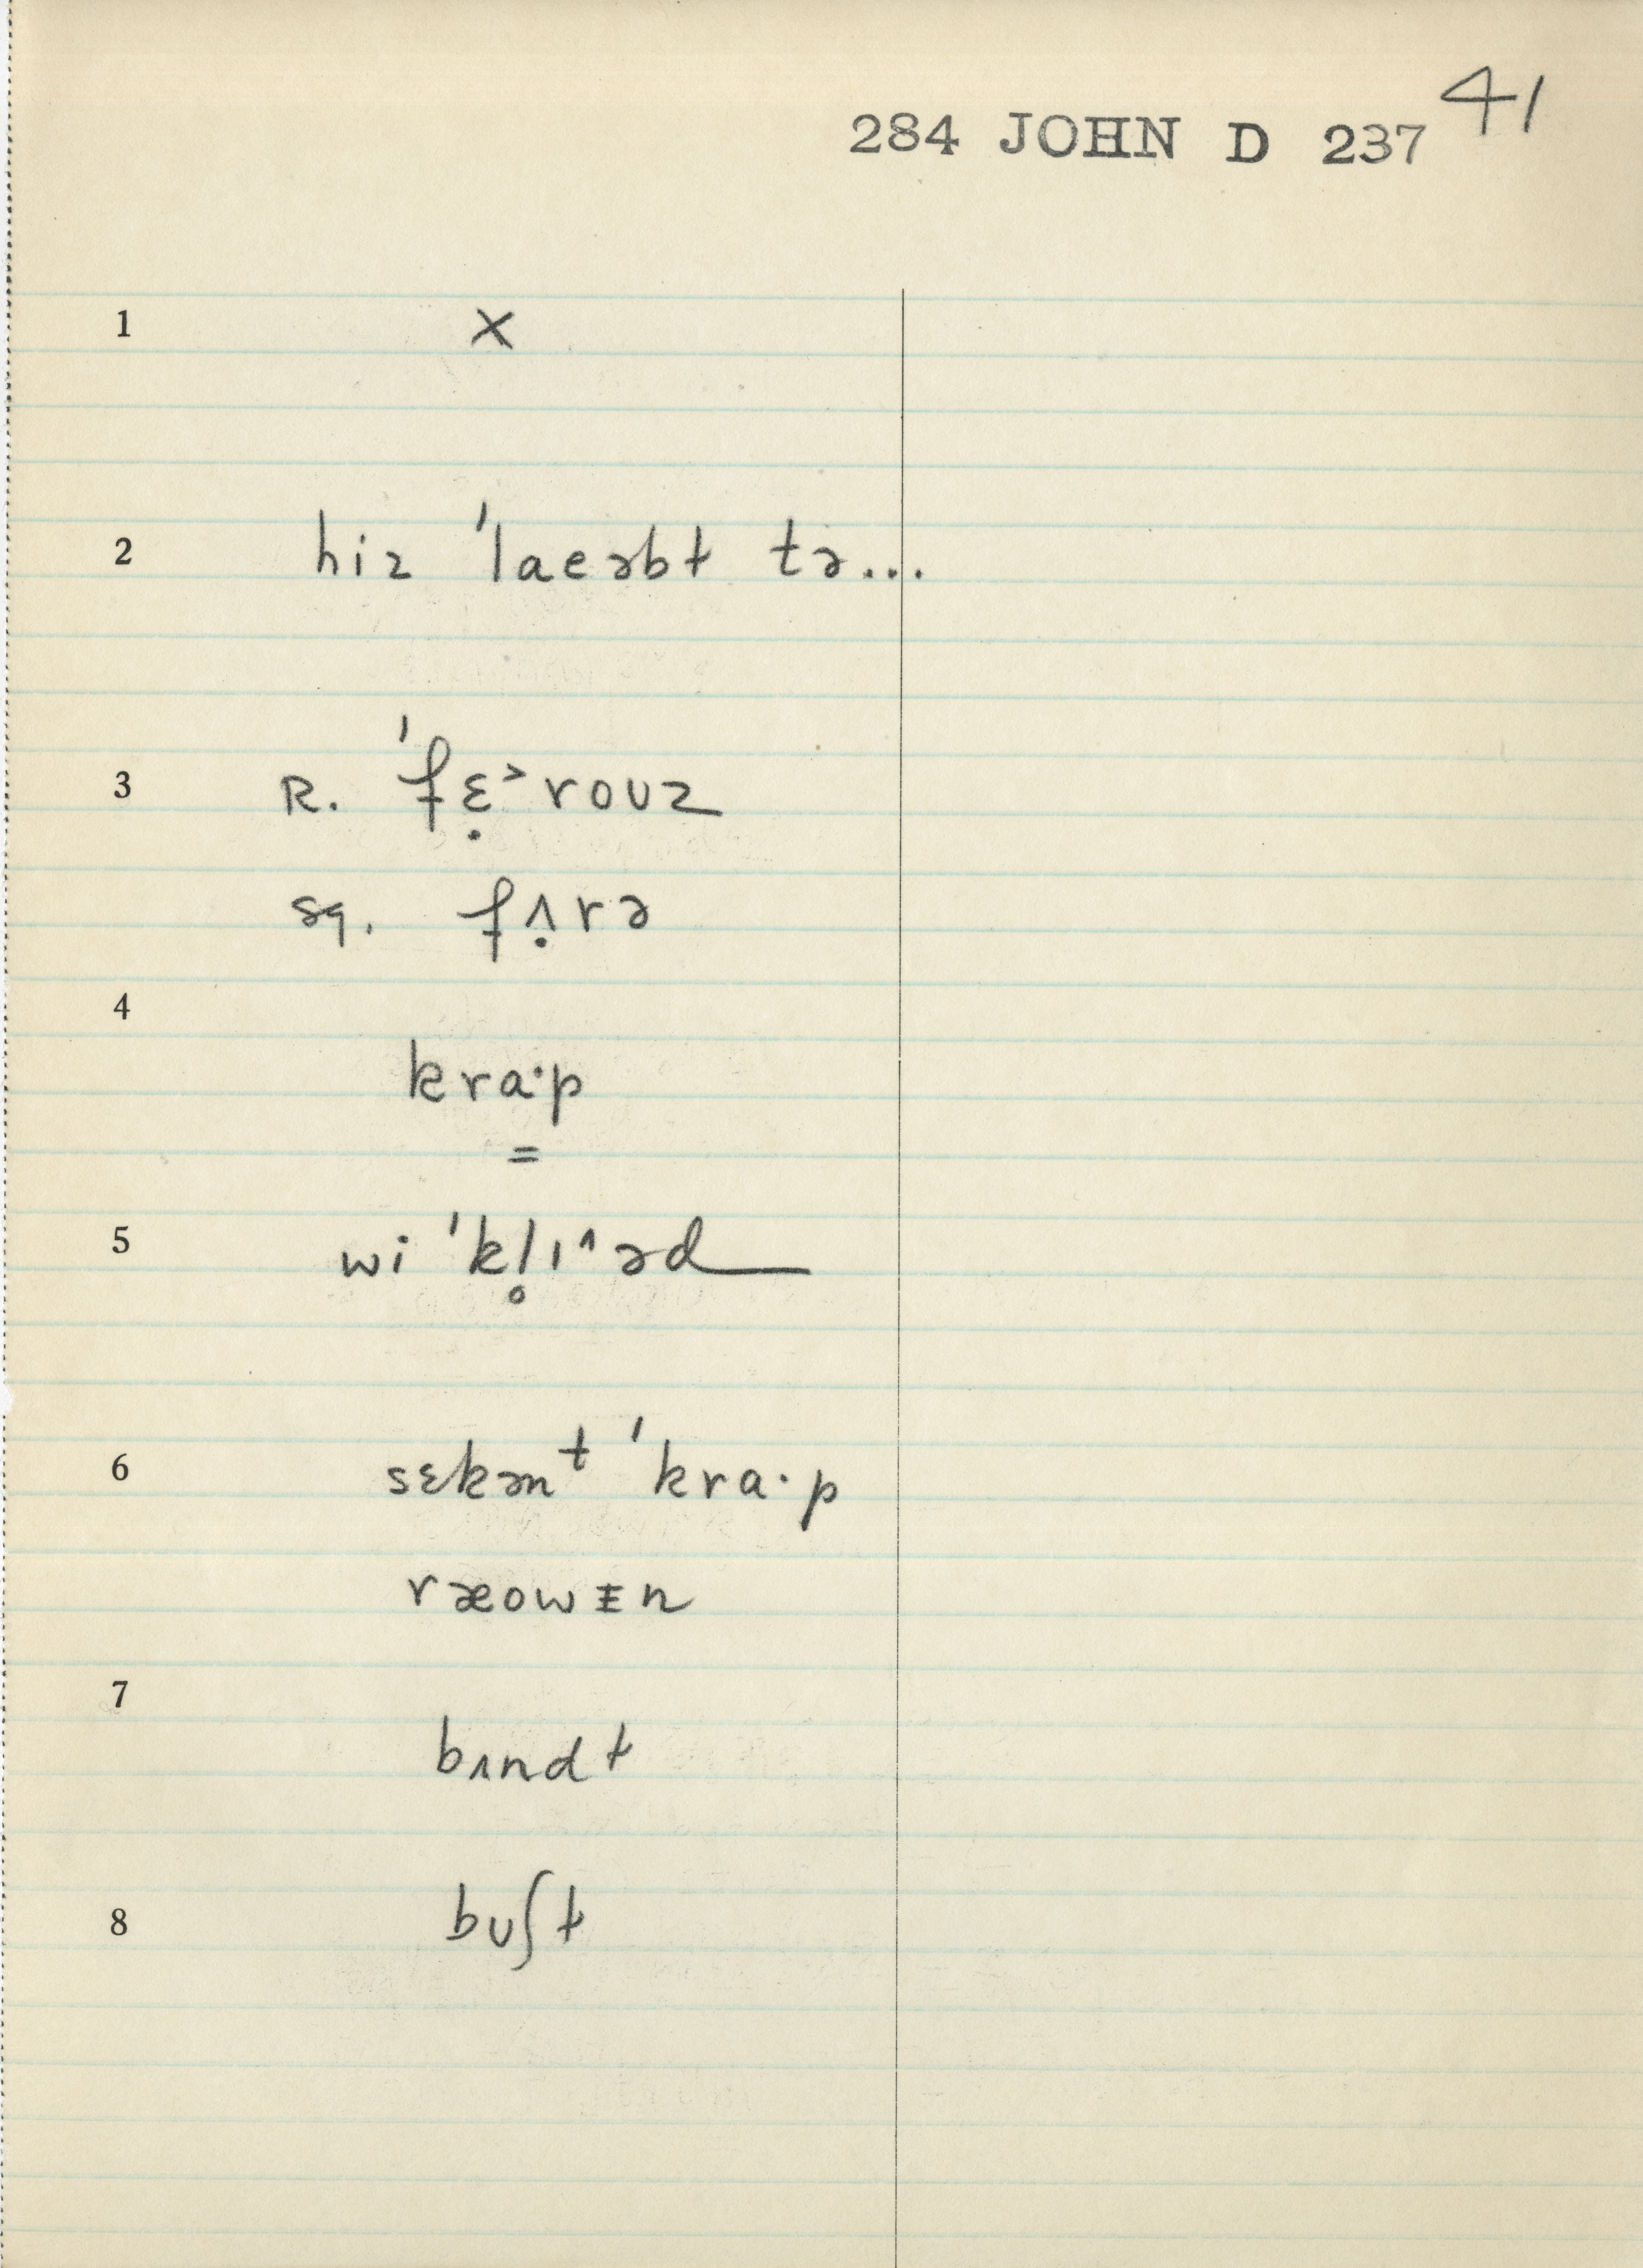 41
284 JOHN D 237
1 ×
2 hiz ˈlaeəbt tə...
3 R. ˈfɛ̣˃rouz
sg. fʌ̣rə
4
kra·p
=
5 wi ˈkl̥ɪ^əd
6 sɛkənᵗ ˈkra·p
ræowɪn
7
bʌndt
8 bʊʃt